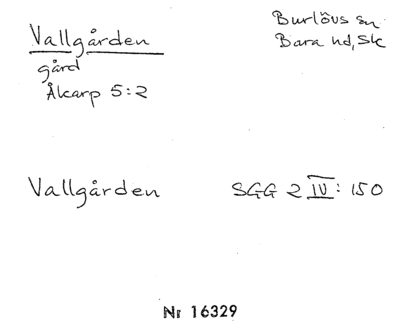 Vallgården
gård
Åkarp 5:2
Burlövs sn
Bara hd, Sk
Vallgården
SGG 2 IV: 150
Nr 16329